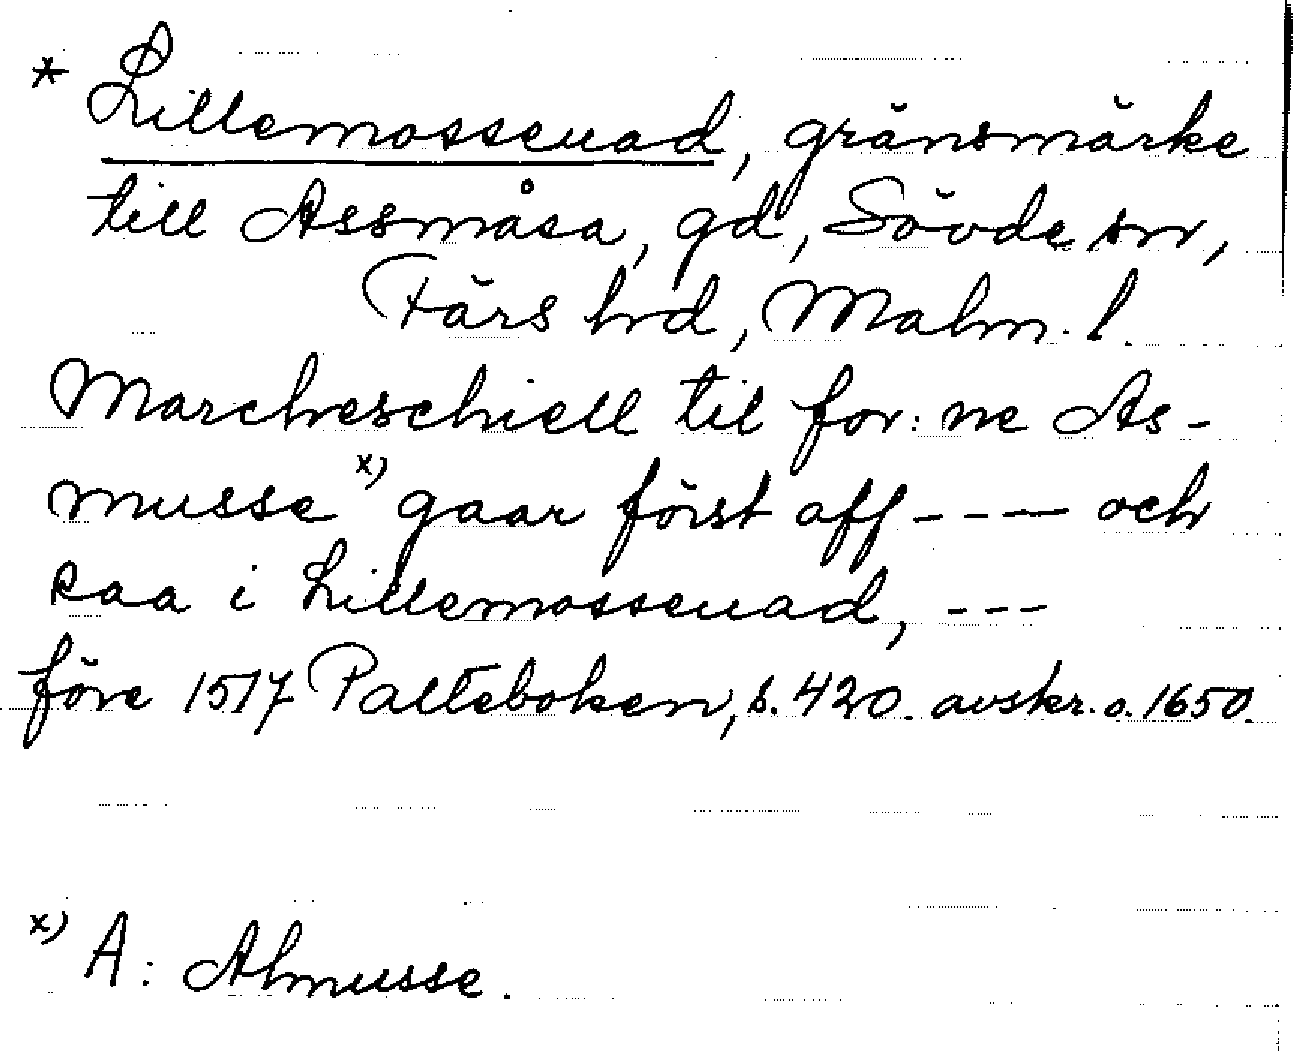 * Lillemosseuad, gränsmärke
till Assmåsa, gd, Sövde sn,
Färs hrd, Malm. l.
Marcheschiell til for: ne As-
musse x) gaar först aff ---- och
saa i Lillemosseuad, ---
före 1517 Palteboken, s. 420. avskr. o. 1650.
x) A: Ahmusse.